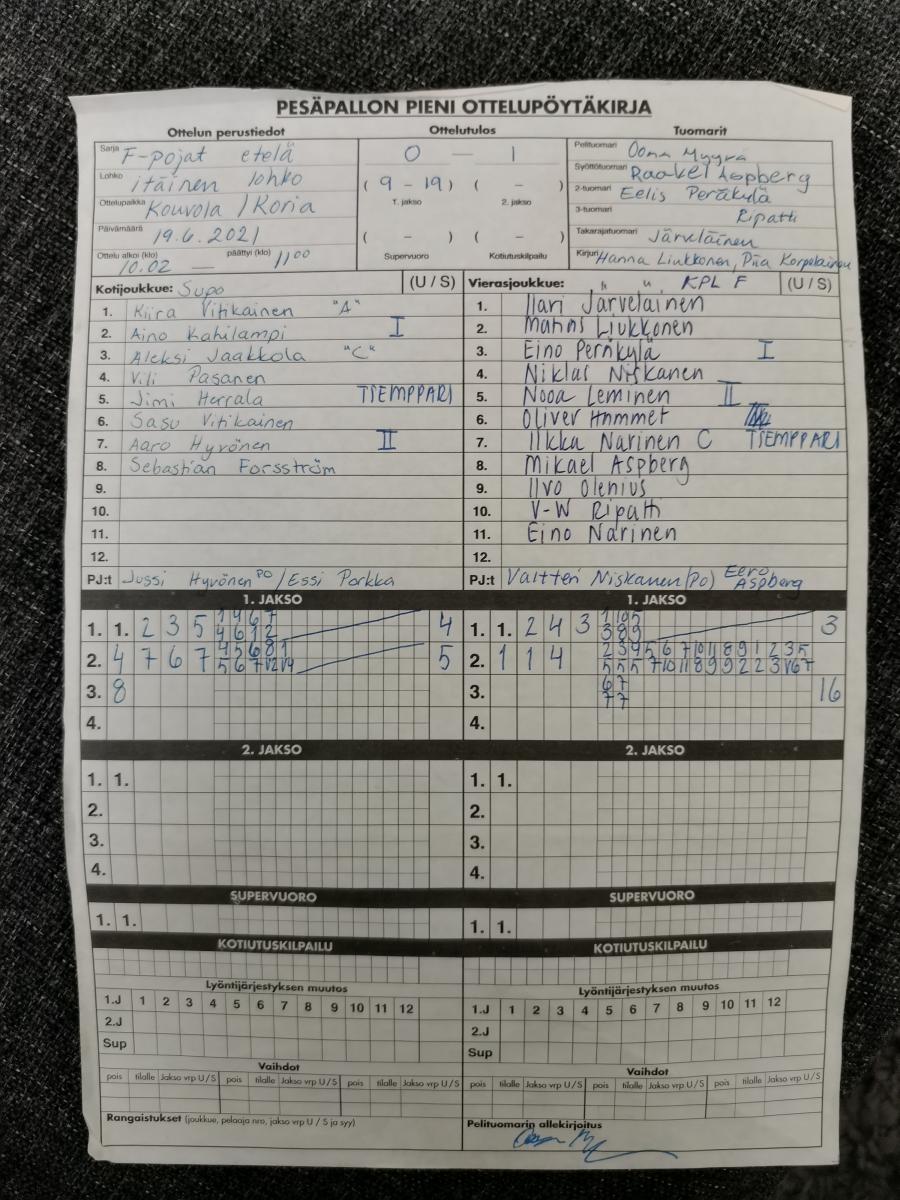 PESÄPALLON PIENI OTTELUPÖYTÄKIRJA
Ottelun perustiedot Ottelutulos Tuomarit
Sarja F-pojat etelä
Lohko itäinen lohko
Ottelupaikka Kouvola / Koria
Päivämäärä 19.6.2021
Ottelu alkoi (klo) 10.02 — päättyi (klo) 11 00
0 — 1
( 9 - 19 ) ( - )
1. jakso 2. jakso
( - ) ( - )
Supervuoro Kotiutuskilpailu
Pelituomari Oona Myyrä
Syöttötuomari Raakel Aspberg
2-tuomari Eelis Peräkylä
3-tuomari Ripatti
Takarajatuomari Järveläinen
Kirjuri Hanna Liukkonen, Piia Korpelainen
Kotijoukkue: Supo (U / S)
1. Kiira Vitikainen "A"
2. Aino Kahilampi I
3. Aleksi Jaakkola "C"
4. Vili Pasanen
5. Jimi Herrala TSEMPPARI
6. Sasu Vitikainen
7. Aaro Hyvönen II
8. Sebastian Forsström
9.
10.
11.
12.
PJ:t Jussi Hyvönen PO / Essi Porkka
Vierasjoukkue: KPL F (U / S)
1. Ilari Järveläinen
2. Mathis Liukkonen
3. Eino Peräkylä I
4. Niklas Niskanen
5. Nooa Leminen II
6. Oliver Hammet
7. Ilkka Narinen C TSEMPPARI
8. Mikael Aspberg
9. Ilvo Olenius
10. V-W Ripatti
11. Eino Narinen
12.
PJ:t Valtteri Niskanen (PO) Eero Aspberg
1. JAKSO
1. 1. 2 3 5 1 4 6 7 4
4 6 1 2
2. 4 7 6 7 4 5 6 8 1 5
5 6 7 12 14
3. 8
4.
1. JAKSO
1. 1. 2 4 3 1 10 5 3
3 8 9
2. 1 1 4 2 3 4 5 6 7 10 11 8 9 1 2 3 5
5 5 5 7 10 11 8 9 9 2 2 3 6 7
3. 6 7 16
7 7
4.
2. JAKSO
1. 1.
2.
3.
4.
2. JAKSO
1. 1.
2.
3.
4.
SUPERVUORO
1. 1.
SUPERVUORO
1. 1.
KOTIUTUSKILPAILU
KOTIUTUSKILPAILU
Lyöntijärjestyksen muutos
1.J 1 2 3 4 5 6 7 8 9 10 11 12
2.J
Sup
Lyöntijärjestyksen muutos
1.J 1 2 3 4 5 6 7 8 9 10 11 12
2.J
Sup
Vaihdot
pois tilalle Jakso vrp U / S pois tilalle Jakso vrp U / S pois tilalle Jakso vrp U / S
Vaihdot
pois tilalle Jakso vrp U / S pois tilalle Jakso vrp U / S pois tilalle Jakso vrp U / S
Rangaistukset (joukkue, pelaaja nro, jakso vrp U / S ja syy)
Pelituomarin allekirjoitus